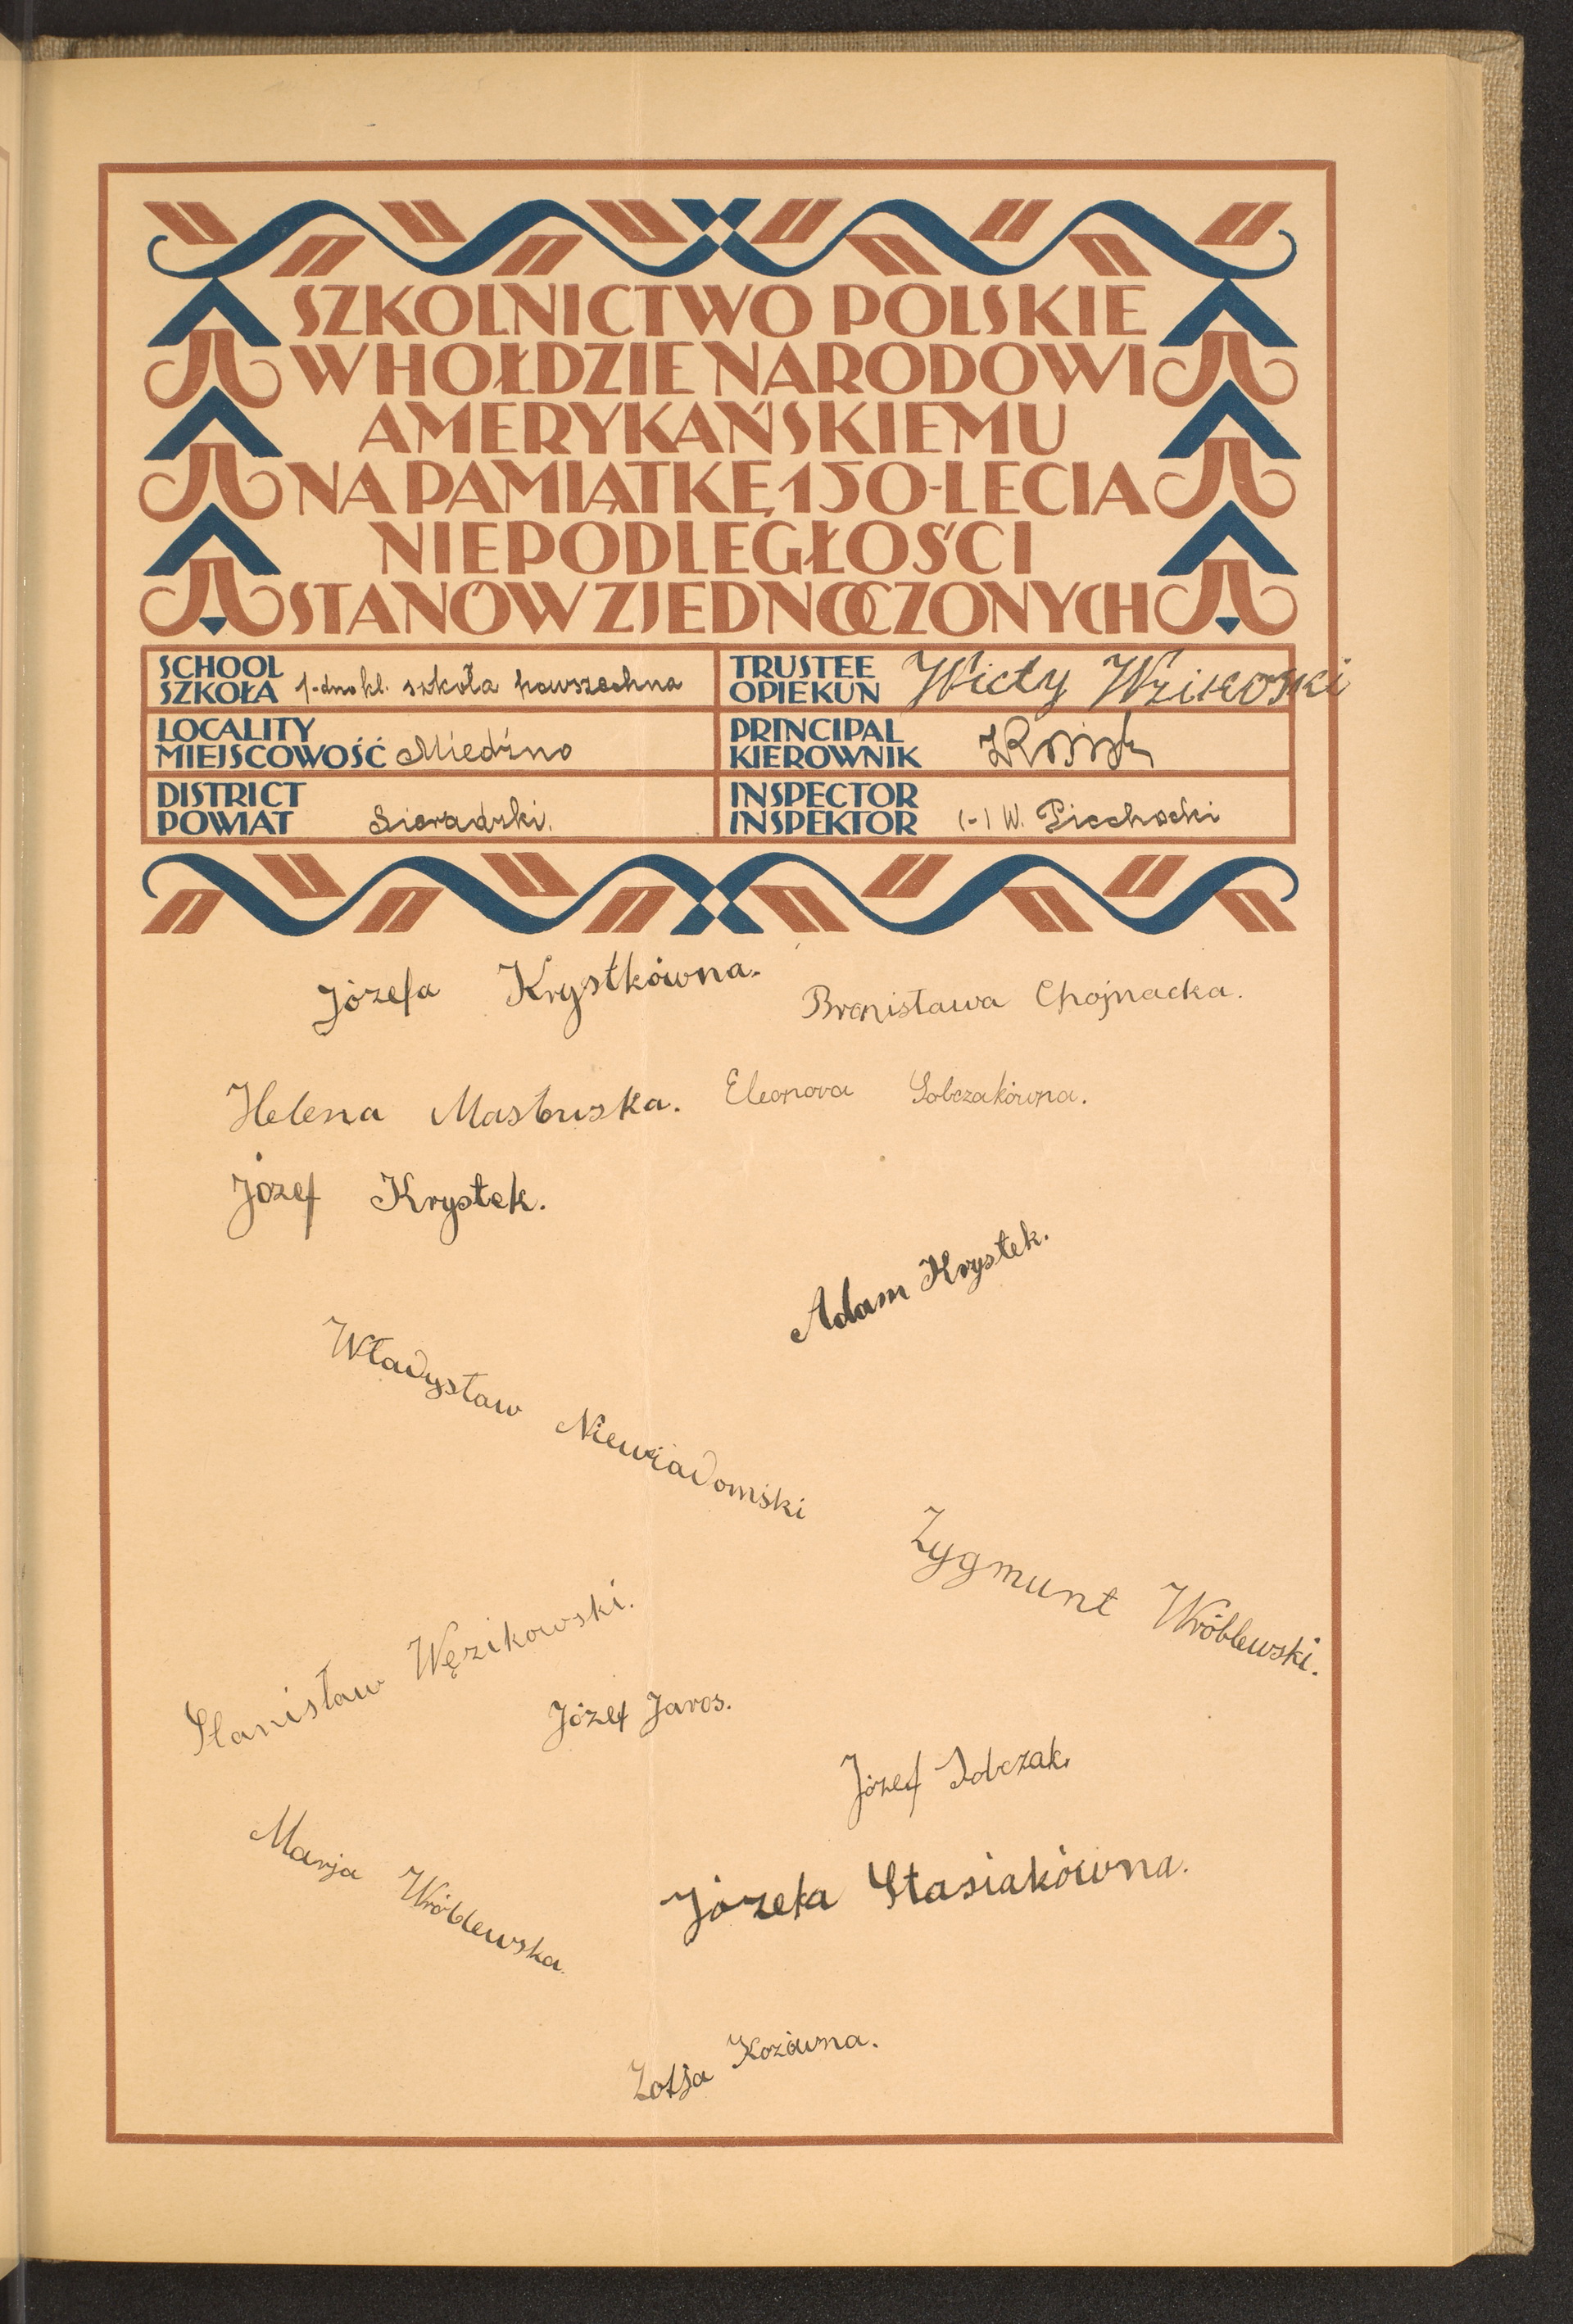 SZKOLNICTWO POLSKIE
W HOŁDZIE NARODOWI
AMERYKAŃSKIEMU
NA PAMIĄTKĘ 150-LECIA
NIEPODLEGŁOŚCI
STANÓW ZJEDNOCZONYCH
SCHOOL
SZKOŁA 1-dno kl. szkoła powszechna
TRUSTEE
OPIEKUN Wicty
LOCALITY
MIEJSCOWOŚĆ Miedźno
PRINCIPAL
KIEROWNIK
DISTRICT
POWIAT Sieradzki.
INSPECTOR
INSPEKTOR (-) W. Piechocki
Józefa Krystkówna.
Bronisława Chojnacka.
Helena Masłuska.
Eleonora Sobczakówna.
Józef Krystek.
Adam Krystek.
Władysław Niewiadomski
Zygmunt Wróblewski.
Stanisław Węzikowski.
Józef Jaros.
Józef Sobczak.
Marja Wróblewska.
Józefa Stasiakówna.
Zofja Kozówna.